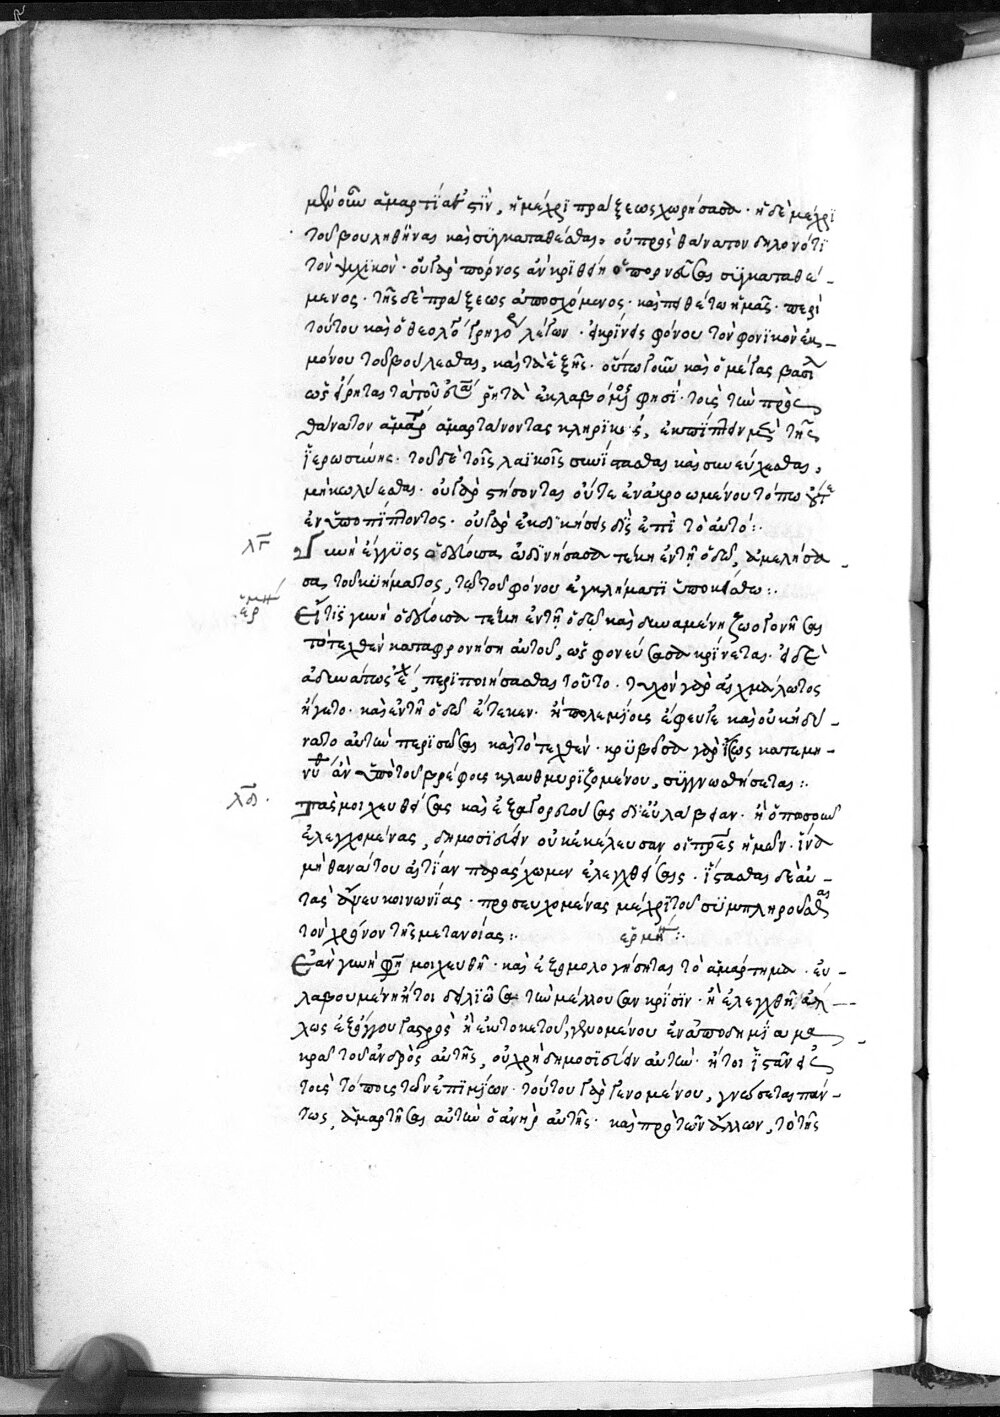 μὲν οὖν ἁμαρτία ἐστὶν, ἡ μέχρι πράξεως χωρήσασα· ἡ δὲ μέχρι
τοῦ βουληθῆναι καὶ συγκαταθέσθαι, οὐ πρὸς θάνατον δηλονότι
τὸν ψυχικόν· οὐ γὰρ πόρνος ἂν κριθείη ὁ πορνεῦσαι συγκαταθέ-
μενος· τῆς δὲ πράξεως ἀποσχόμενος· καὶ πειθέτω ἡμᾶς περὶ
τούτου καὶ ὁ θεολόγος Γρηγόριος λέγων·
μόνου τοῦ βούλεσθαι, καὶ τὰ ἑξῆς· οὕτω γοῦν καὶ ὁ μέγας βασίλει
φησί· τοὺς τὴν πρὸς
θάνατον ἁμαρτίαν ἁμαρτάνοντας κληρικοὺς, ἐκπίπτειν μὲν τῆς
ἱερωσύνης· τοῦ δὲ τοῖς λαϊκοῖς συνίστασθαι καὶ συνεύχεσθαι,
μὴ κωλύεσθαι· οὐ γὰρ στήσονται οὔτε ἐν ἀκροωμένου τόπω οὔτε
ἐν ὑποπίπτοντος· οὐ γὰρ ἐκδικήσεις δὶς ἐπὶ τὸ αὐτό:·
λγ Γυνὴ ἔγγυος ὁδεύουσα ὠδινήσασα τέκη ἐν τῇ ὁδῷ, ἀμελήσα-
σα τοῦ κυήματος, τῷ τοῦ φόνου ἐγκλήματι ὑποκείσθω:·
ἑρμη Εἴ τις γυνὴ ὁδεύουσα τέκη ἐν τῇ ὁδῷ καὶ δυναμένη ζωογονῆσαι
τὸ τεχθὲν καταφρονήση αὐτοῦ, ὡς φονεύσασα κρίνεται· εἰ δὲ
ἀδυνάτως εἶχε, περιποιήσασθαι τοῦτο· τυχὸν γὰρ αἰχμάλωτος
ἤγετο· καὶ ἐν τῇ ὁδῷ ἔτεκεν· ἢ πολεμίους ἔφευγε καὶ οὐκ ἠδύ-
νατο αὐτὴν περισῶσαι καὶ τὸ τεχθέν· κρύβουσα γὰρ ἴσως κατεμη-
νύθη ἂν ὑπὸ τοῦ βρέφους κλαυθμυριζομένου, συγγνωσθήσεται:·
λδ· Τὰς μοιχευθείσας καὶ ἐξαγορευούσας δι' εὐλάβειαν· ἢ ὁπωσοῦν
ἐλεγχομένας, δημοσιεύειν οὐκ ἐκέλευσαν οἱ πρες ἡμῶν· ἵνα
μὴ θανάτου αἰτίαν παράσχωμεν ἐλεγχθείσαις· ἵστασθαι δὲ αὐ-
τὰς ἄνευ κοινωνίας· προσευχομένας μέχρι τοῦ συμπληροῦσθαι
τὸν χρόνον τῆς μετανοίας:· ἑρμη:·
Ἐὰν γυνὴ φησὶ μοιχευθῆ· καὶ ἐξομολογήσηται τὸ ἁμάρτημα· εὐ-
λαβουμένη ἤτοι δειλιῶσα τὴν μέλλουσαν κρίσιν· ἢ ἐλεγχθῆ ἄλ-
λως ἐξόγγου γαστρὸς ἢ ἐκ τοκετοῦ, γενομένου ἐν ἀποδημία μα
κρᾶ τοῦ ἀνδρὸς αὐτῆς, οὐ χρὴ δημοσιεύειν αὐτήν· ἤτοι ἱστᾶν εἰς
τοὺς τόπους τῶν ἐπιτιμίων· τούτου γὰρ γενομένου, γνώσεται πάν-
τως, ἁμαρτῆσαι αὐτὴν ὁ ἀνὴρ αὐτῆς· καὶ πρὸ τῶν ἄλλων, τὸ τῆς